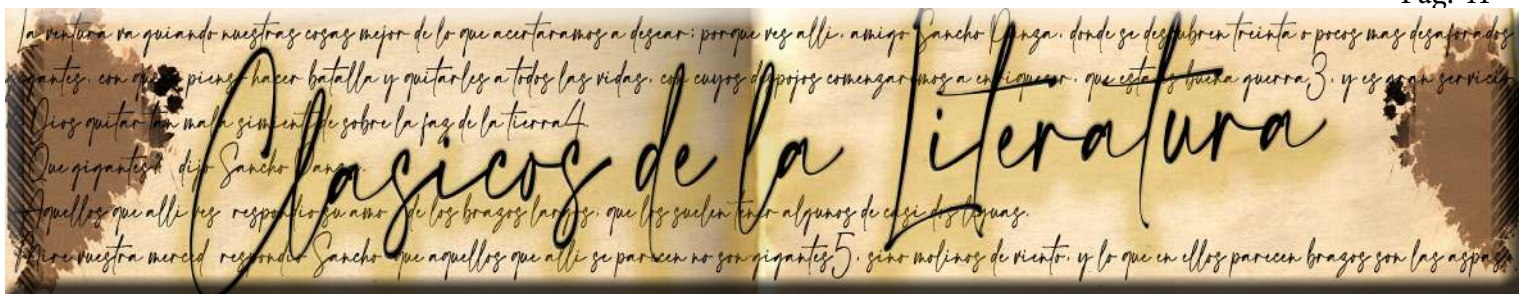 la ventura va guiando nuestras cosas mejor de lo que acertaramos a desear; porque ves alli, amigo Sancho Panza, donde se descubren treinta o pocos mas desaforados
gigantes, con quien pienso hacer batalla y quitarles a todos las vidas, con cuyos despojos comenzaremos a enriquecer, que esta es buena guerra3, y es gran servicio
Dios quitar tan mala simiente de sobre la faz de la tierra4.
Que gigantes? dijo Sancho Panza.
Clasicos de la Literatura
Aquellos que alli ves respondio su amo de los brazos largos, que los suelen tener algunos de casi dos leguas.
Mire vuestra merced respondio Sancho que aquellos que alli se parecen no son gigantes5, sino molinos de viento, y lo que en ellos parecen brazos son las aspas,